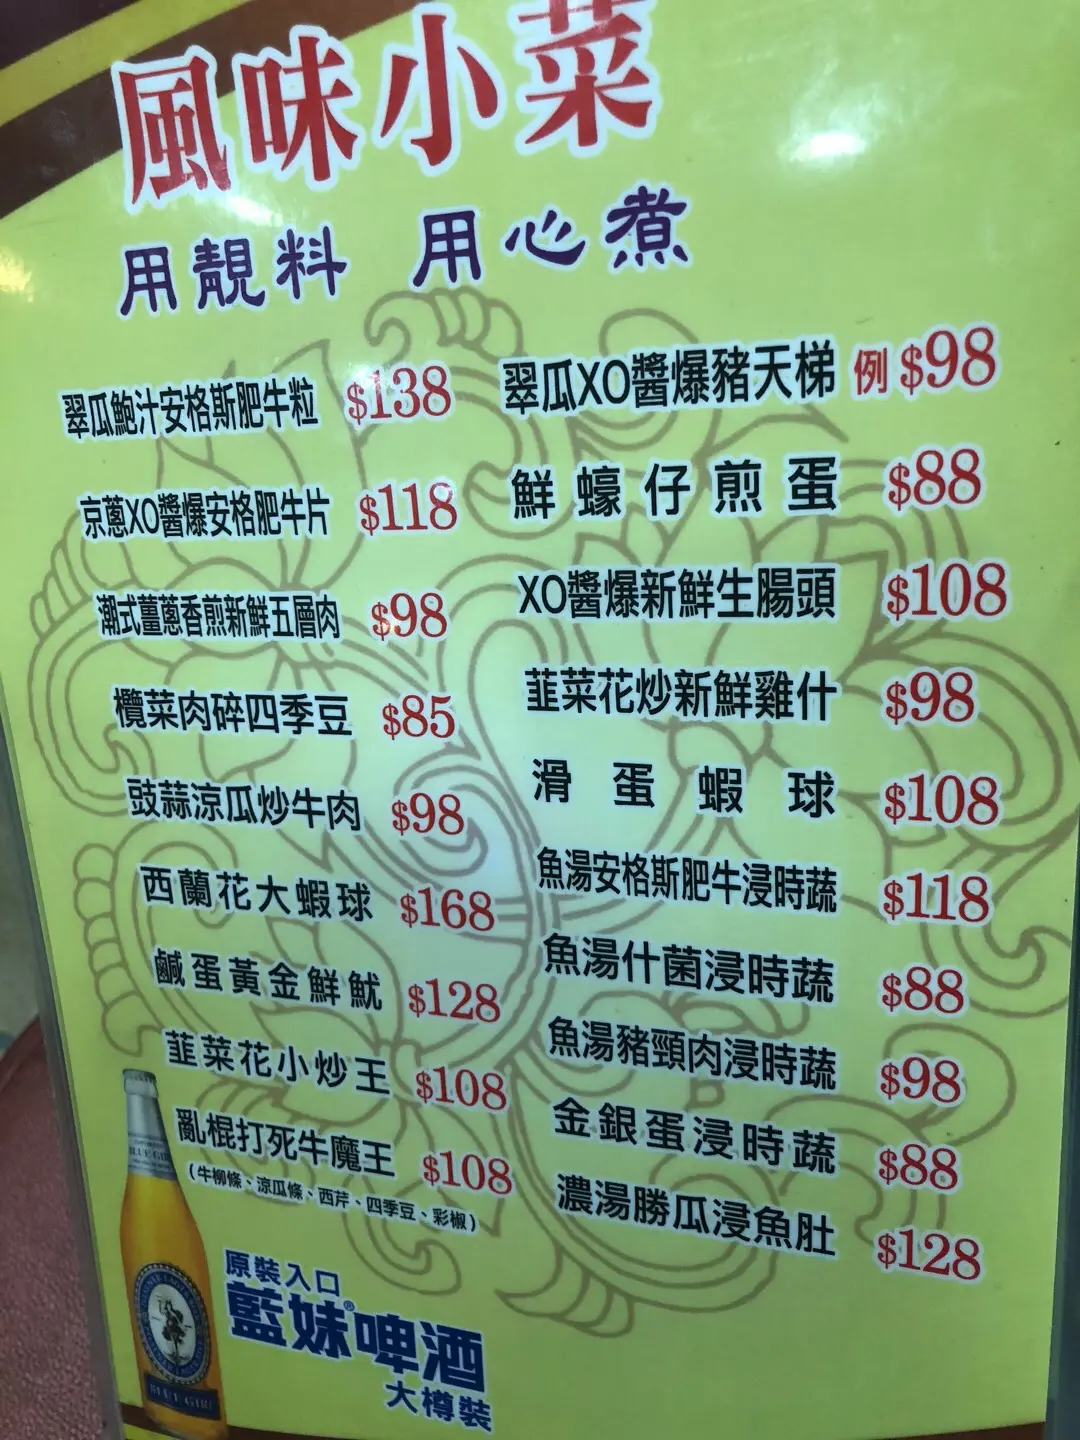 風味小菜
用靚料 用心煮
翠瓜鮑汁安格斯肥牛粒 $138
京蔥XO醬爆安格肥牛片 $118
潮式薑蔥香煎新鮮五層肉 $98
欖菜肉碎四季豆 $85
豉蒜涼瓜炒牛肉 $98
西蘭花大蝦球 $168
鹹蛋黃金鮮魷 $128
韮菜花小炒王 $108
亂棍打死牛魔王 $108
(牛柳條、涼瓜條、西芹、四季豆、彩椒)
翠瓜XO醬爆豬天梯 例 $98
鮮蠔仔煎蛋 $88
XO醬爆新鮮生腸頭 $108
韮菜花炒新鮮雞什 $98
滑蛋蝦球 $108
魚湯安格斯肥牛浸時蔬 $118
魚湯什菌浸時蔬 $88
魚湯豬頸肉浸時蔬 $98
金銀蛋浸時蔬 $88
濃湯勝瓜浸魚肚 $128
原裝入口
藍妹®啤酒
大樽裝
BLUE GIRL
BLUE GIRL